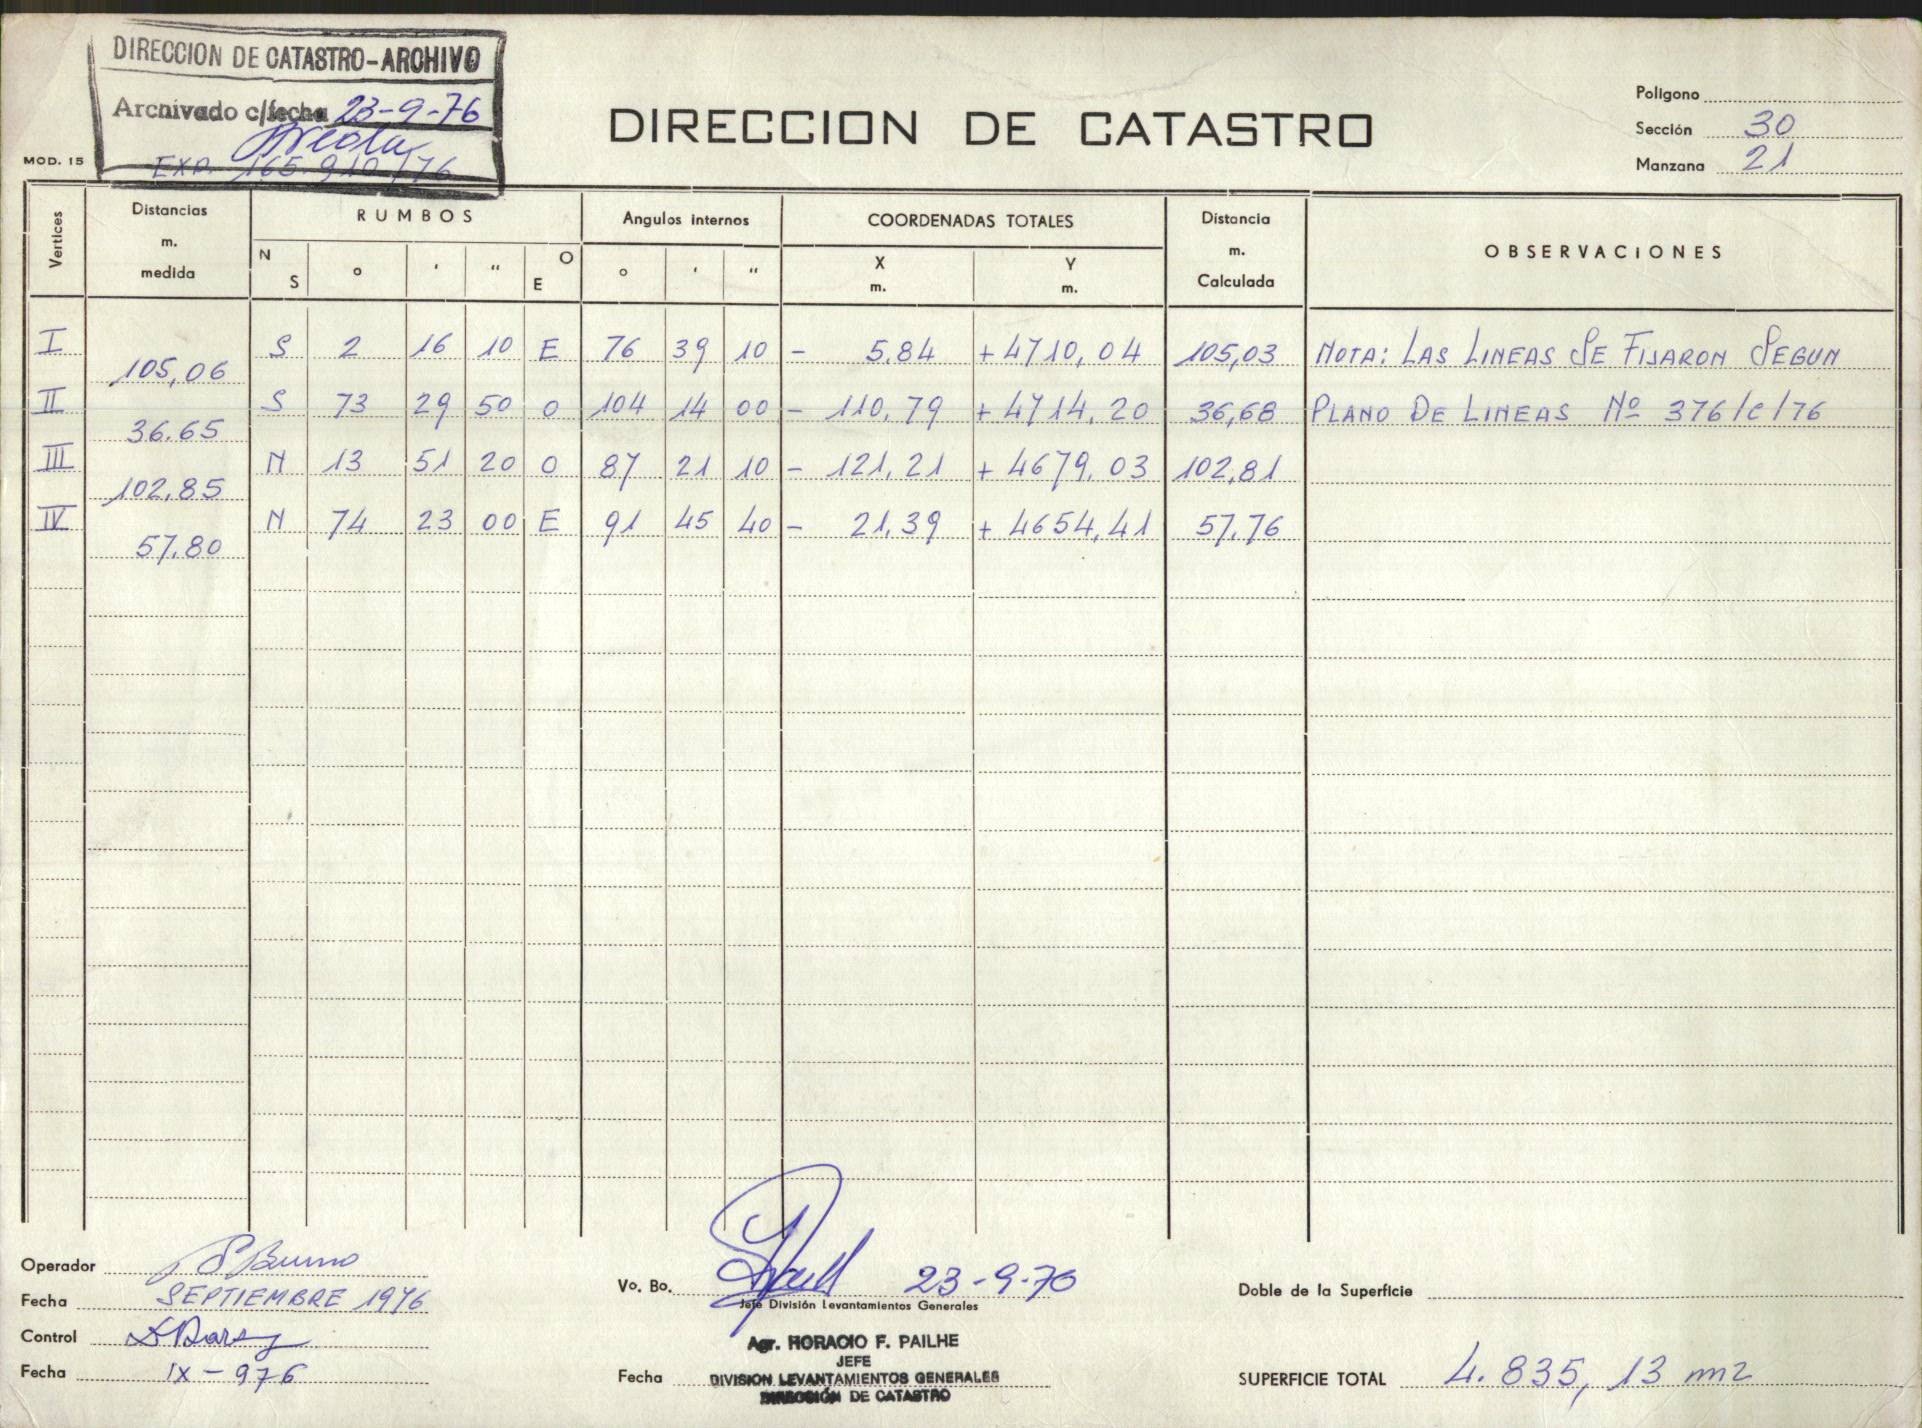 DIRECCION DE CATASTRO-ARCHIVO
Archivado c/fecha 23-9-76
EXP. 165.910/76
MOD. 15
DIRECCION DE CATASTRO
Poligono
Sección 30
Manzana 21
Vertices
Distancias m. medida
RUMBOS
N S o ' " O E
Angulos internos
o ' "
COORDENADAS TOTALES
X m. Y m.
Distancia m. Calculada
OBSERVACIONES
I S 2 16 10 E 76 39 10 - 5.84 +4710,04 105,03 NOTA: LAS LINEAS SE FIJARON SEGUN
105,06
II S 73 29 50 O 104 14 00 - 110,79 +4714,20 36,68 PLANO DE LINEAS Nº 376/C/76
36.65
III N 13 51 20 O 87 21 10 - 121,21 +4679,03 102,81
102.85
IV N 74 23 00 E 91 45 40 - 21,39 +4654,41 57,76
57.80
Operador
Fecha SEPTIEMBRE 1976
Control
Fecha IX-976
Vo. Bo. 23-9-76
Jefe División Levantamientos Generales
Agr. HORACIO F. PAILHE
JEFE
Fecha DIVISION LEVANTAMIENTOS GENERALES
DIRECCIÓN DE CATASTRO
Doble de la Superficie
SUPERFICIE TOTAL 4.835,13 m2